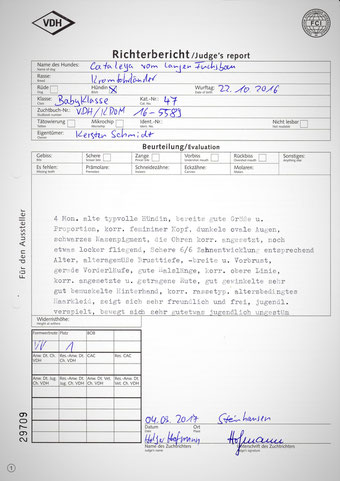 VDH
FCI
Richterbericht/Judge's report
Name des Hundes: Cataleya vom langen Fuchsbau
Name of dog
Rasse: Kromfohrländer
Breed
Rüde Hündin X Wurftag: 22.10.2016
Dog Bitch Date of birth
Klasse: Babyklasse Kat.-Nr.: 47
Class Cat. No.
Zuchtbuch-Nr.: VDH/
16-5589
Tätowierung Mikrochip Ident.-Nr.: Nicht lesbar
Tattooing Microchip Ident. No. Not readable
Eigentümer: Kersten Schmidt
Owner
Beurteilung/Evaluation
Gebiss: Schere Zange Vorbiss Rückbiss Sonstiges:
Es fehlen: Prämolare: Schneidezähne: Eckzähne: Molaren:
4 Mon. alte typvolle Hündin, bereits gute Größe u.
Proportion, korr. femininer Kopf, dunkele ovale Augen,
schwarzes Nasenpigment, die Ohren korr. angesetzt, noch
etwas locker fliegend, Schere 6/6 Zahnentwicklung entsprechend
Alter, altersgemäße Brusttiefe, -breite u. Vorbrust,
gerade Vorderläufe, gute Halslänge, korr. obere Linie,
korr. angesetzte u. getragene Rute, gut gewinkelte sehr
gut bemuskelte Hinterhand, korr. rassetyp. altersbedingtes
Haarkleid, zeigt sich sehr freundlich und frei, jugendl.
verspielt, bewegt sich sehr gut etwas jugendlich ungestüm
Für den Aussteller
Widerristhöhe:
Height at withers
Formwertnote Platz BOB
VV 1
Anw. Dt. Ch. VDH Res.-Anw. Dt. Ch. VDH CAC Res. CAC
Anw. Dt. Jug. Ch. VDH Res.-Anw. Dt. Jug. Ch. VDH Anw. Dt. Vet. Ch. VDH Res.-Anw. Dt. Vet. Ch. VDH
04.03.2017 Steinhausen
Datum Ort
Date Place
Holger Hofmann Hofmann
Name des Zuchtrichters Unterschrift des Zuchtrichters
Judge's name Judge's signature
29709
1